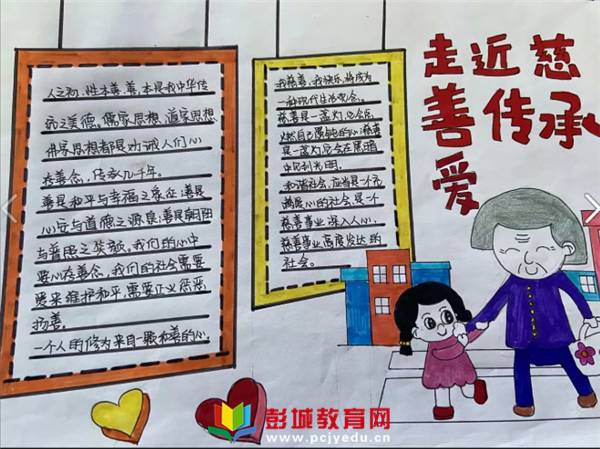 走近慈
善传承
爱
人之初,性本善,善,本是我中华传
统之美德,儒家思想、道家思想
佛家思想都是劝诫人们心
存善念,传承几千年。
善是和平与幸福之象征;善是
心安与道德之源泉;善是朝阳
与普照之笑颜,我们的心中
要心存善念,我们的社会需要
爱来维护和平,需要正义惩恶
扬善。
一个人的修为来自一颗和善的心。
我慈善,我快乐,将成为
一种现代生活观念。
慈善是一盏灯,它会点
燃自己钝的心;慈善
是一盏灯,它会在黑暗
中见到光明。
和谐社会,应当是一个充
满爱心的社会,是一个
慈善事业深入人心,
慈善事业高度发达的
社会。
彭城教育网
www.pcjyedu.cn